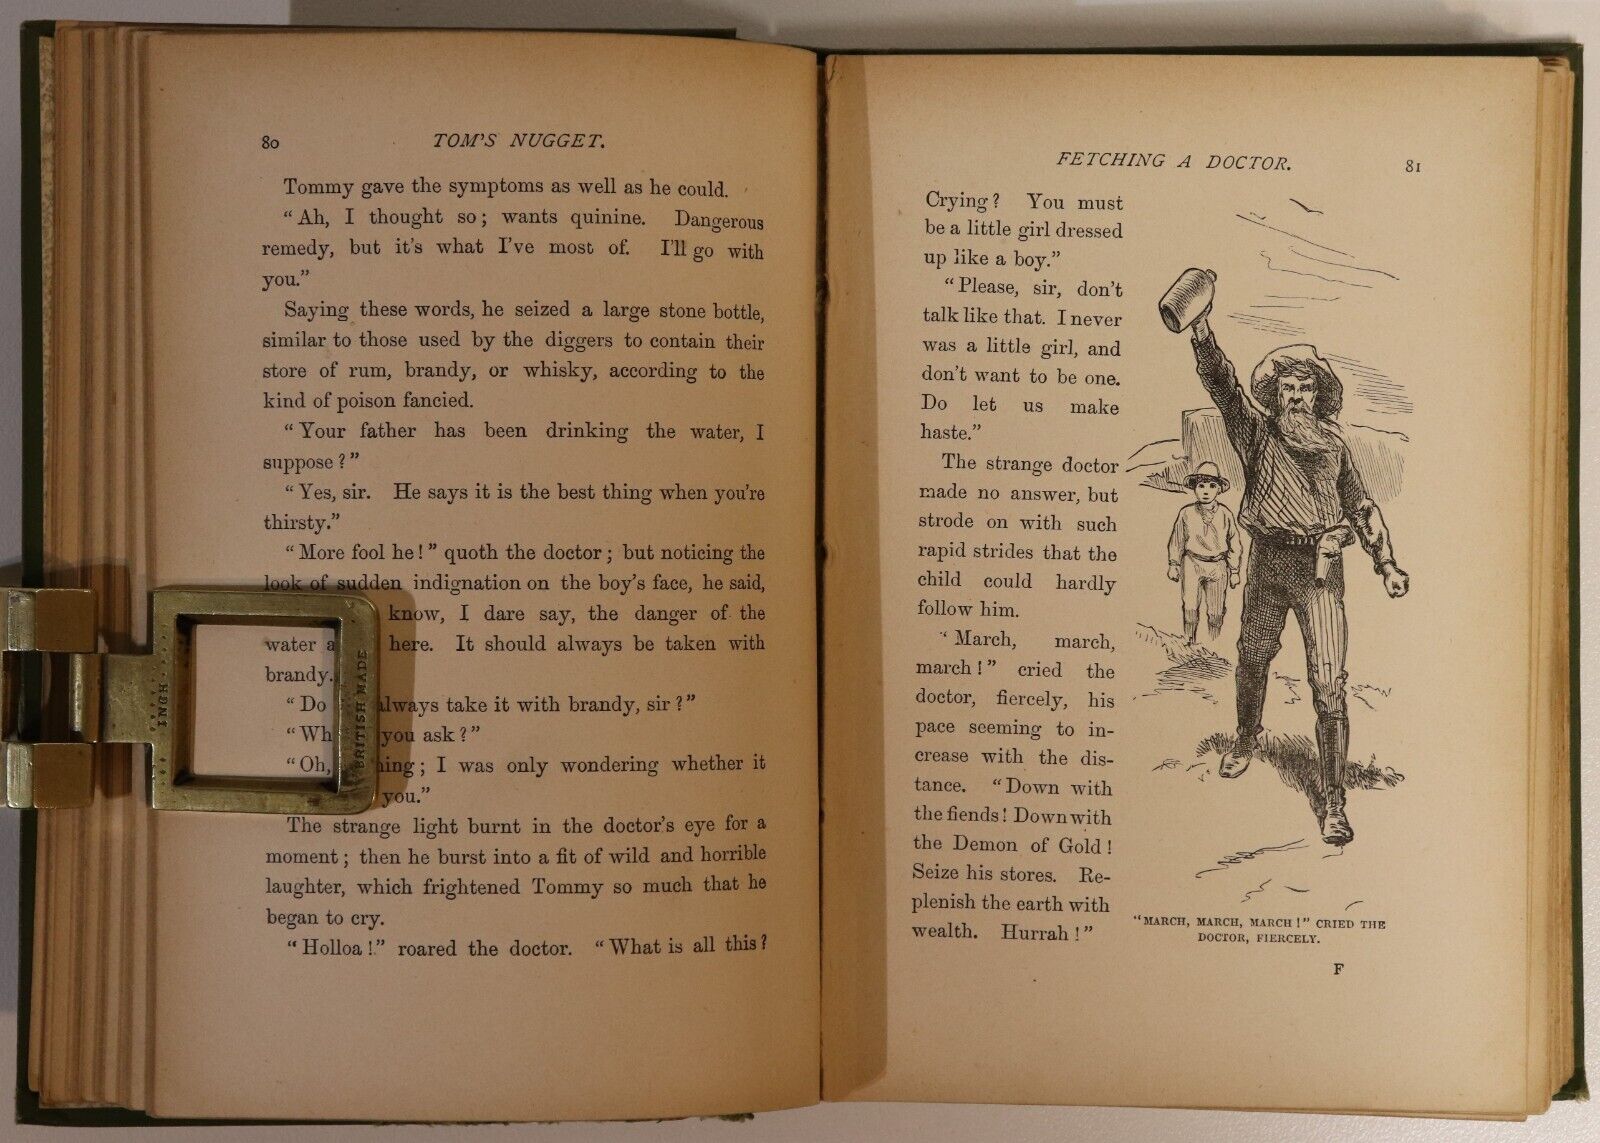 80 TOM'S NUGGET.
Tommy gave the symptoms as well as he could.
"Ah, I thought so; wants quinine. Dangerous
remedy, but it's what I've most of. I'll go with
you."
Saying these words, he seized a large stone bottle,
similar to those used by the diggers to contain their
store of rum, brandy, or whisky, according to the
kind of poison fancied.
"Your father has been drinking the water, I
suppose?"
"Yes, sir. He says it is the best thing when you're
thirsty."
"More fool he!" quoth the doctor; but noticing the
look of sudden indignation on the boy's face, he said,
know, I dare say, the danger of the
water here. It should always be taken with
brandy.
"Do always take it with brandy, sir?"
you ask?"
"Oh, I was only wondering whether it
you."
The strange light burnt in the doctor's eye for a
moment; then he burst into a fit of wild and horrible
laughter, which frightened Tommy so much that he
began to cry.
"Holloa!" roared the doctor. "What is all this?
INGH
BRITISH MADE
FETCHING A DOCTOR. 81
Crying? You must
be a little girl dressed
up like a boy."
"Please, sir, don't
talk like that. I never
was a little girl, and
don't want to be one.
Do let us make
haste."
The strange doctor
made no answer, but
strode on with such
rapid strides that the
child could hardly
follow him.
"March, march,
march!" cried the
doctor, fiercely, his
pace seeming to in-
crease with the dis-
tance. "Down with
the fiends! Down with
the Demon of Gold!
Seize his stores. Re-
plenish the earth with
wealth. Hurrah!"
"MARCH, MARCH, MARCH!" CRIED THE
DOCTOR, FIERCELY.
F